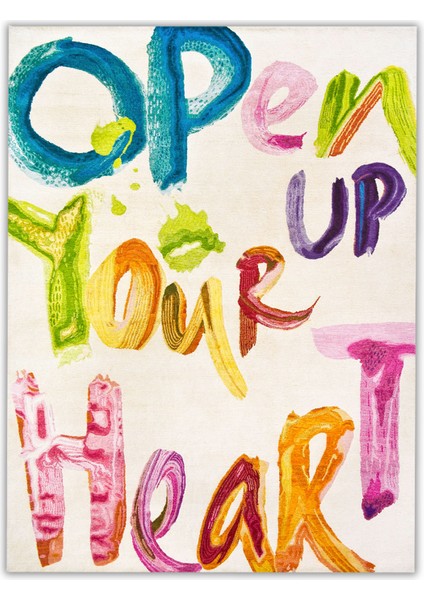 OPen
UP
YouR
HeaRT